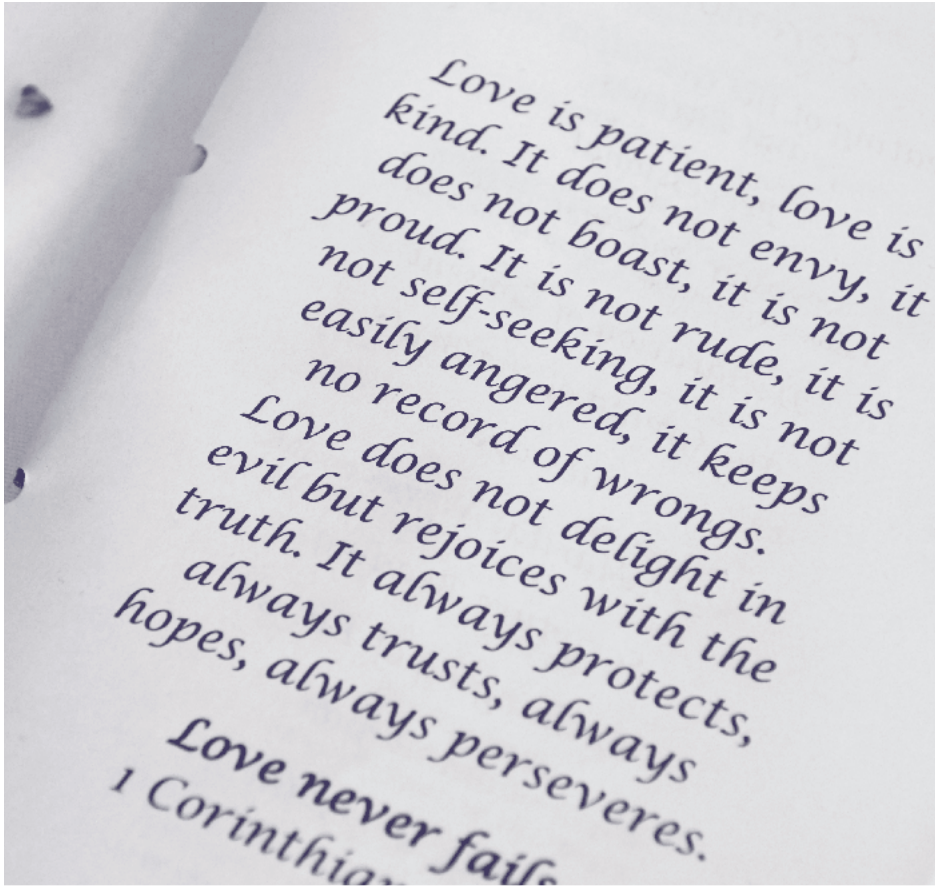 Love is patient, love is
kind. It does not envy, it
does not boast, it is not
proud. It is not rude, it is
not self-seeking, it is not
easily angered, it keeps
no record of wrongs.
Love does not delight in
evil but rejoices with the
truth. It always protects,
always trusts, always
hopes, always perseveres.
Love never fails
1